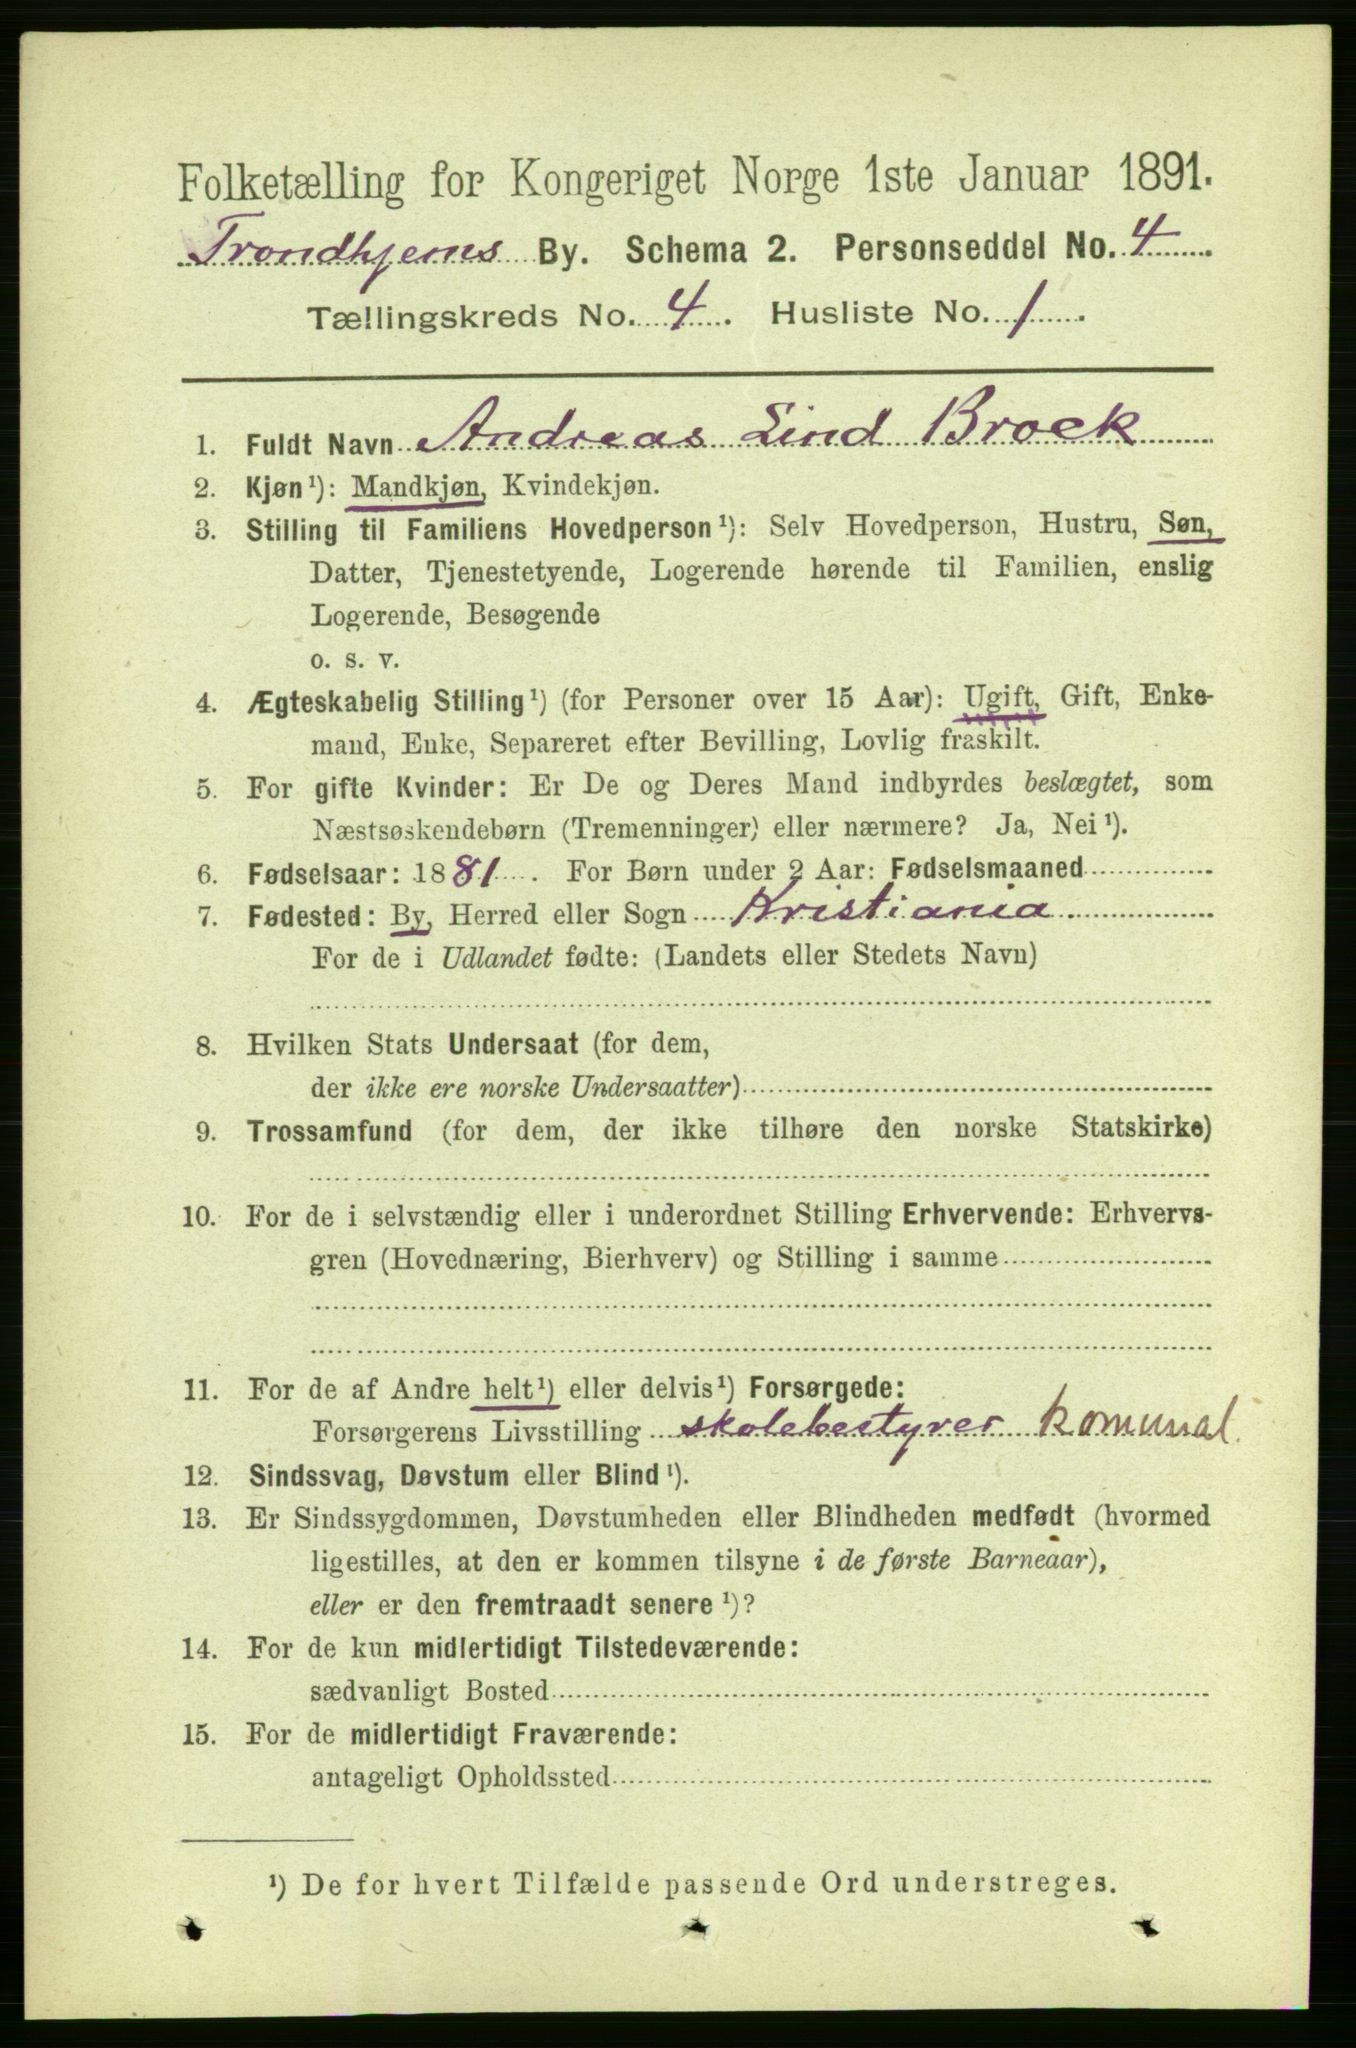 Folketælling for Kongeriget Norge 1ste Januar 1891.
Trondhjems By. Schema 2. Personseddel No. 4
Tællingskreds No. 4. Husliste No. 1
1. Fuldt Navn Andreas Lind Brock
2. Kjøn¹): Mandkjøn, Kvindekjøn.
3. Stilling til Familiens Hovedperson¹): Selv Hovedperson, Hustru, Søn,
Datter, Tjenestetyende, Logerende hørende til Familien, enslig
Logerende, Besøgende
o. s. v.
4. Ægteskabelig Stilling¹) (for Personer over 15 Aar): Ugift, Gift, Enke-
mand, Enke, Separeret efter Bevilling, Lovlig fraskilt.
5. For gifte Kvinder: Er De og Deres Mand indbyrdes beslægtet, som
Næstsøskendebørn (Tremenninger) eller nærmere? Ja, Nei¹).
6. Fødselsaar: 1881. For Børn under 2 Aar: Fødselsmaaned
7. Fødested: By, Herred eller Sogn Kristiania
For de i Udlandet fødte: (Landets eller Stedets Navn)
8. Hvilken Stats Undersaat (for dem,
der ikke ere norske Undersaatter)
9. Trossamfund (for dem, der ikke tilhøre den norske Statskirke)
10. For de i selvstændig eller i underordnet Stilling Erhvervende: Erhvervs-
gren (Hovednæring, Bierhverv) og Stilling i samme
11. For de af Andre helt¹) eller delvis¹) Forsørgede:
Forsørgerens Livsstilling skolebestyrer komunal.
12. Sindssvag, Døvstum eller Blind¹).
13. Er Sindssygdommen, Døvstumheden eller Blindheden medfødt (hvormed
ligestilles, at den er kommen tilsyne i de første Barneaar),
eller er den fremtraadt senere¹)?
14. For de kun midlertidigt Tilstedeværende:
sædvanligt Bosted
15. For de midlertidigt Fraværende:
antageligt Opholdssted
¹) De for hvert Tilfælde passende Ord understreges.